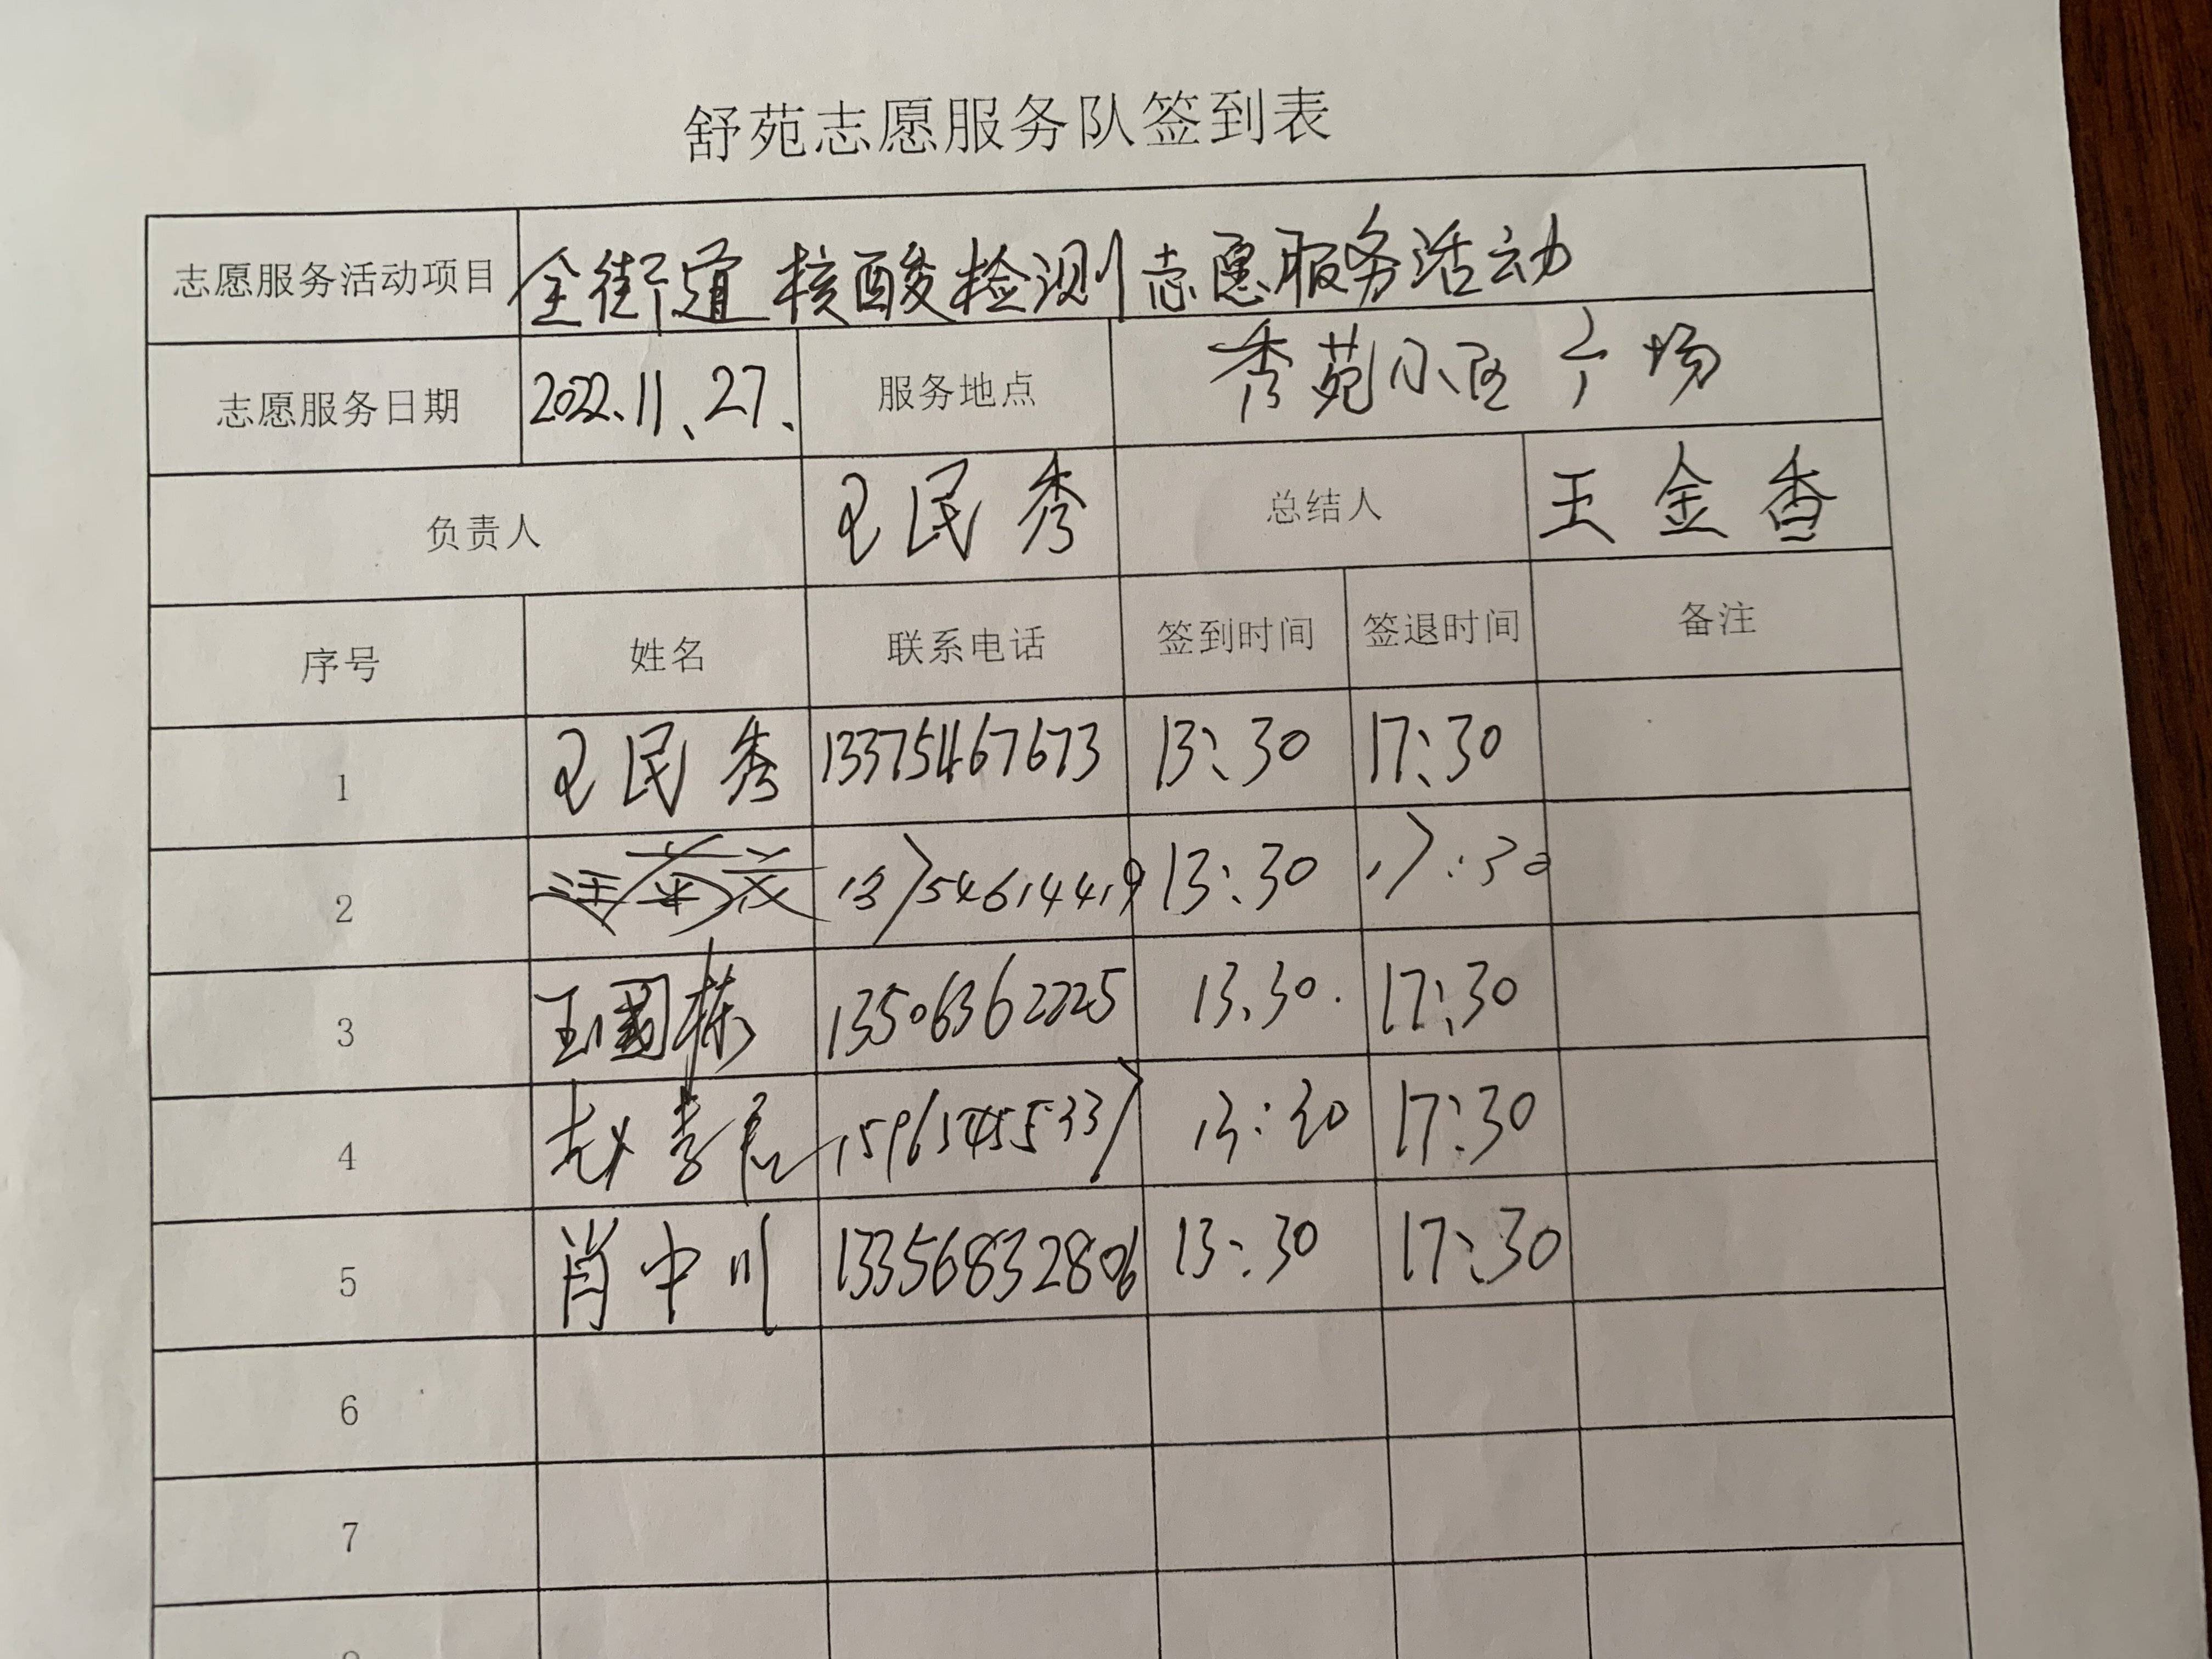 舒苑志愿服务队签到表
志愿服务活动项目 全街道核酸检测志愿服务活动
志愿服务日期 2022.11、27、 服务地点 秀苑小区广场
负责人 王民秀 总结人 王金香
序号 姓名 联系电话 签到时间 签退时间 备注
1 王民秀 13375467673 13:30 17:30
2 13754614419 13:30 17:30
3 王国栋 13506362225 13.30. 17:30
4 赵孝 13:30 17:30
5 肖中川 13356832806 13:30 17:30
6
7